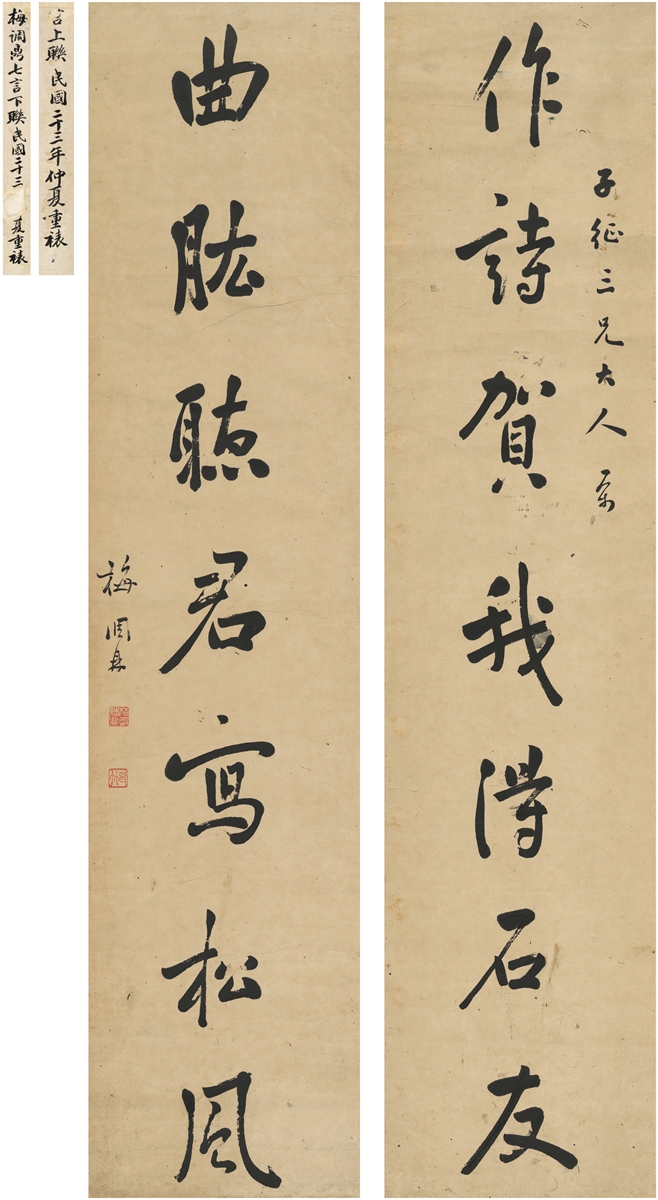 子征三兄大人属
作詩賀我得石友
曲肱聽君寫松風
梅調鼎
言上聯民國二十三年仲夏重裱
梅调鼎七言下聯民國二十三 夏重裱